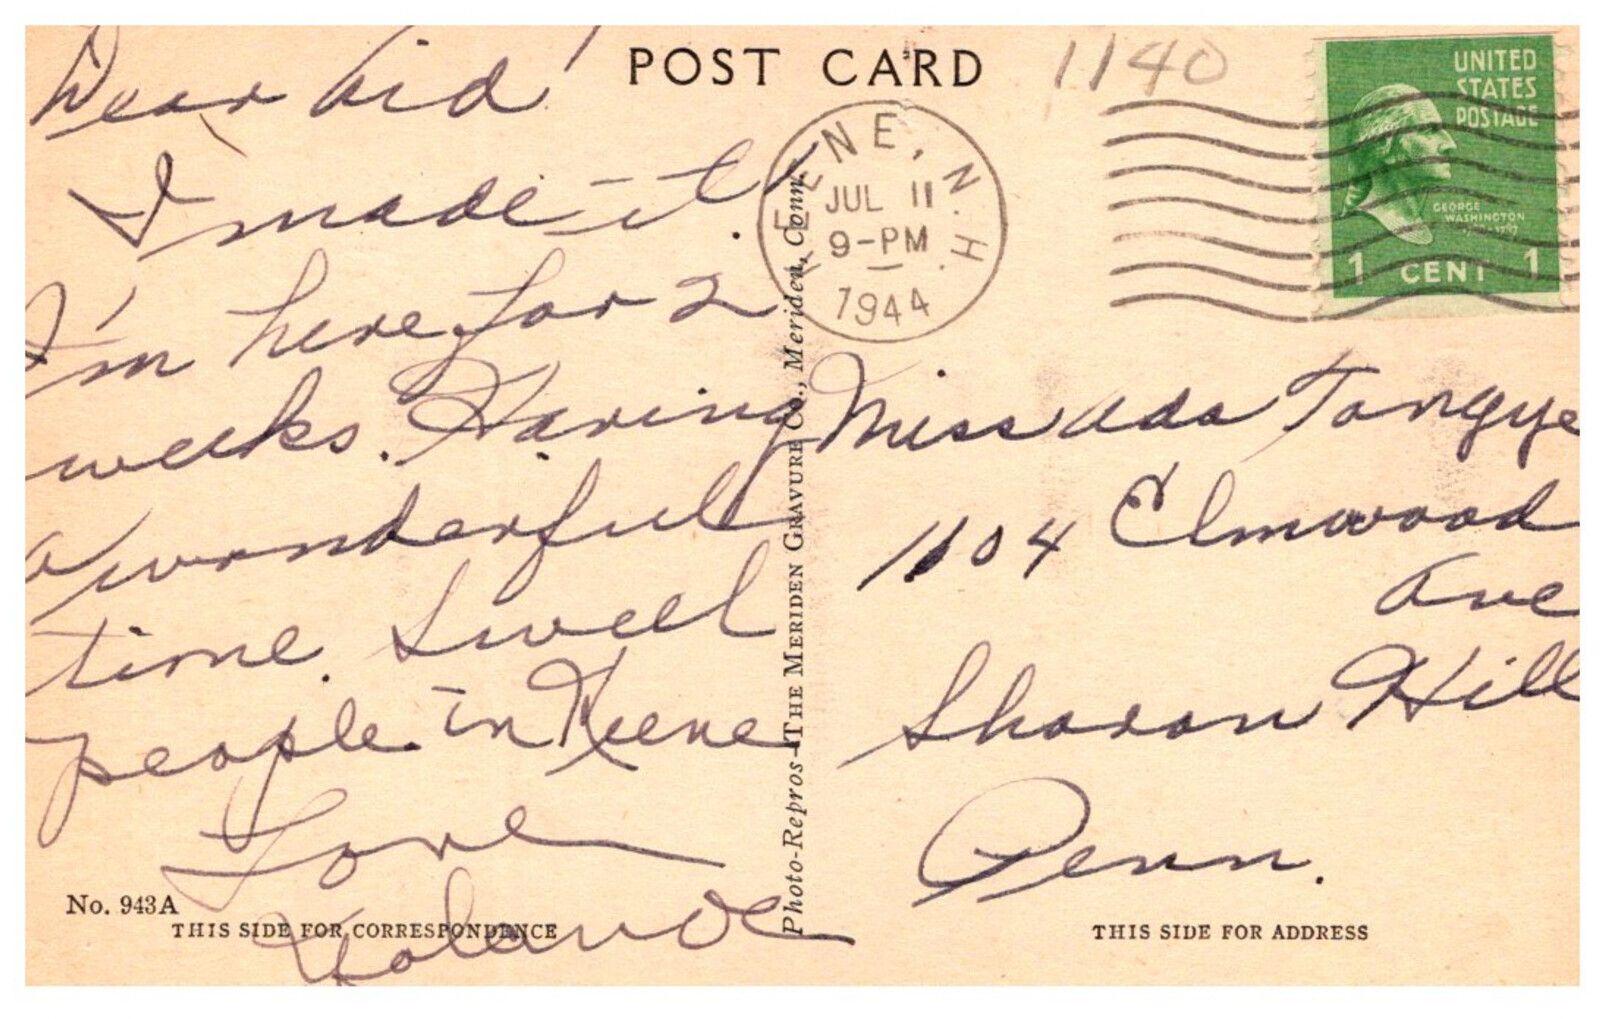 POST CARD
1140
UNITED
STATES
POSTAGE
GEORGE
WASHINGTON
1 CENT 1
KEENE, N.H.
JUL 11
9-PM
1944
Dear Aid!
I made it!
I'm here for 2
weeks. Having
a wonderful
time. Sweet
people in Keene
Love
Yolande
Photo-Repros-THE MERIDEN GRAVURE Co., Meriden, Conn.
Miss Ada Tangye
1104 Elmwood
Ave
Sharon Hill
Penn.
No. 943A
THIS SIDE FOR CORRESPONDENCE
THIS SIDE FOR ADDRESS